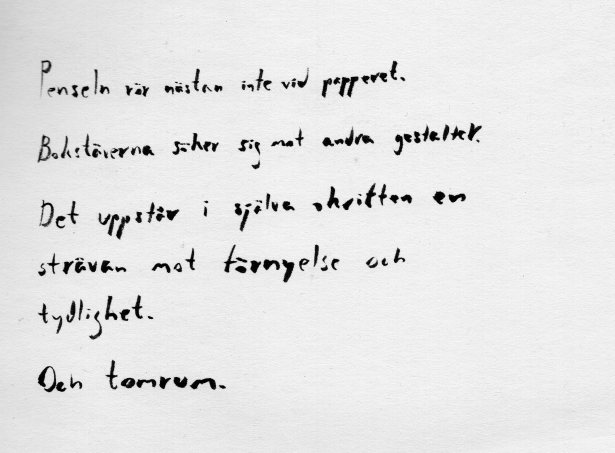 Penseln rör nästan inte vid papperet.
Bokstäverna söker sig mot andra gestalter.
Det uppstår i själva skriften en
strävan mot förnyelse och
tydlighet.
Och tomrum.